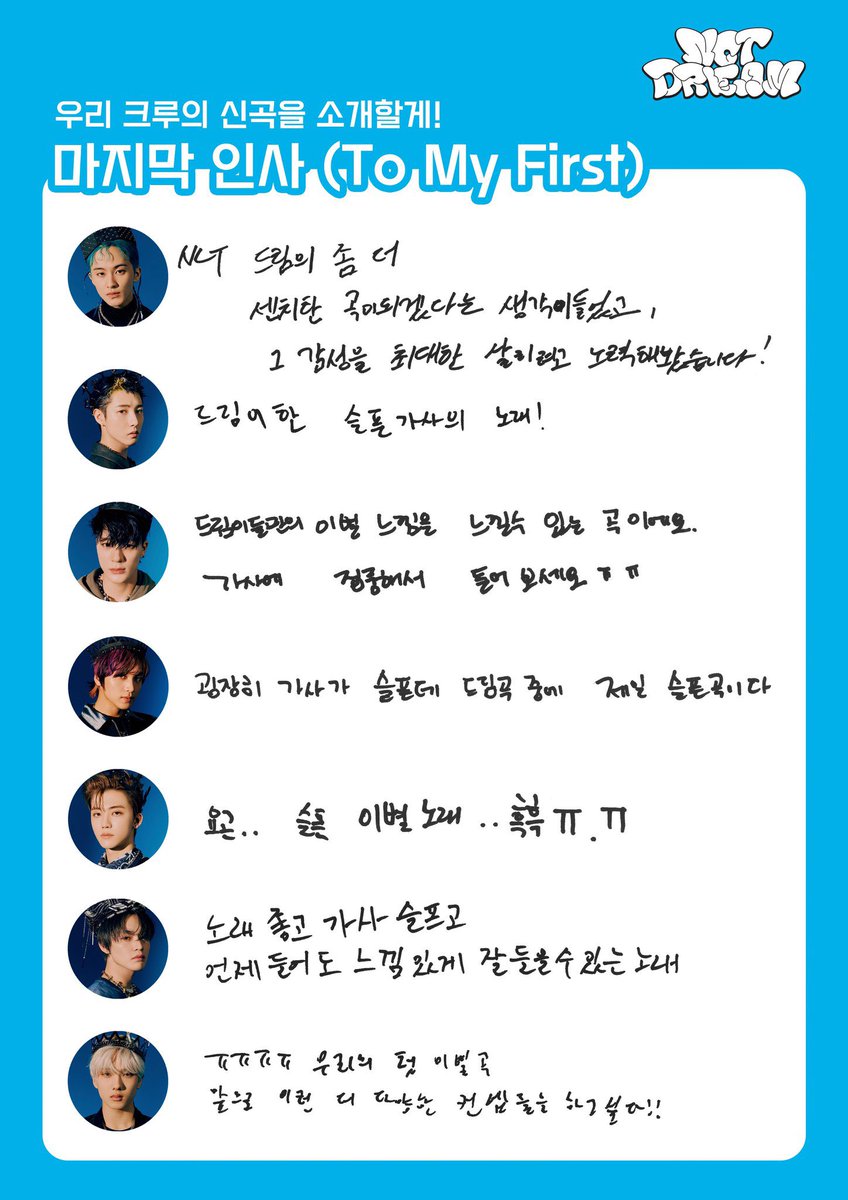 NCT
DREAM
우리 크루의 신곡을 소개할게!
마지막 인사 (To My First)
NCT 드림의 좀 더
센치탄 곡이되겠다는 생각이들었고,
그 감성을 최대한 살리려고 노력해봤습니다!
드림이한 슬픈가사의 노래!
드림이들만의 이별 느낌을 느낄수 있는 곡이에요.
가사에 집중해서 들어보세요ㅠㅠ
굉장히 가사가 슬픈데 드림곡 중에 제일 슬픈곡이다
요곤.. 슬픈 이별노래..흑흑ㅠ.ㅠ
노래 좋고 가사 슬프고
언제들어도 느낌있게 잘들을수있는노래
ㅠㅠㅠㅠ 우리의 첫 이별곡
앞으로 이런 더 다양한 컨셉들을 하고싶다!!